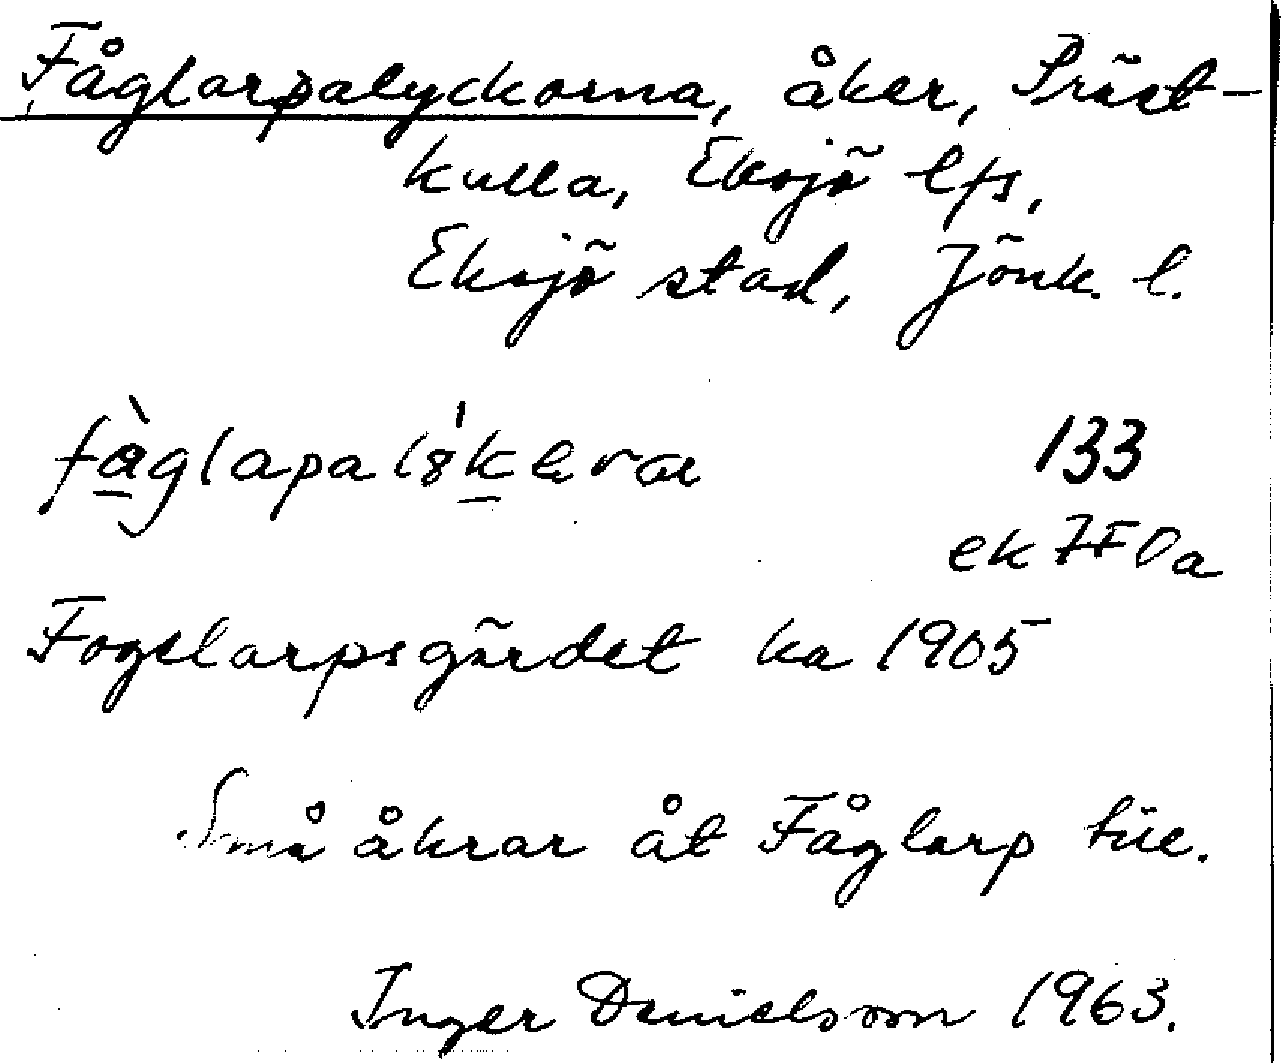 Fåglarpalyckorna, åker, Präst-
kulla, Eksjö lfs,
Eksjö stad, Jönk. l.
133
ek 7F0a
Fogelarpsgärdet ka 1905
Små åkrar åt Fåglarp till.
Inger Danielsson 1963.